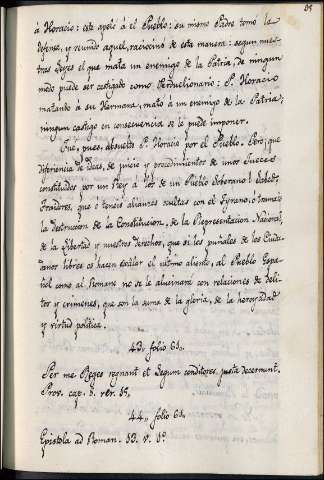 á Horacio: este apeló á el Pueblo: su mismo Padre tomó la
defensa, y reundo aquel, raciocinó de esta manera: segun nues-
tras Leyes el que mata un enemigo de la Patria, de ningun
modo puede ser castigado como Perduelionario: P. Horacio
matando á su Hermana, mató a un enemigo de la Patria;
ningun castigo en consecuencia se le puede imponer.
Fue, pues, absuelto P. Horacio por el Pueblo. Pero, que
diferencia de ideas, de juicio y procedimientos de unos Jueces
constituidos por un Rey á los de un Pueblo Soberano! Sabed,
Oradores, que ó teneis alianzas ocultas con el Tyrano, ó tramais
la destruccion de la Constitucion, de la Representacion Nacional,
de la Libertad y nuestros derechos, que si los puñales de los Ciuda-
danos libres os hacen exalar el ultimo aliento, al Pueblo Espa-
ñol como al Romano no se le alucinará con relaciones de deli-
tos y crimenes, que son la suma de la gloria, de la heroycidad
y virtud politica.
43. folio 61.
Per me Reges regnant et legum conditores justa decernunt.
Prov. cap. 8. ver. 15.
44. folio 61.
Epistola ad Roman. 13. v. 1º